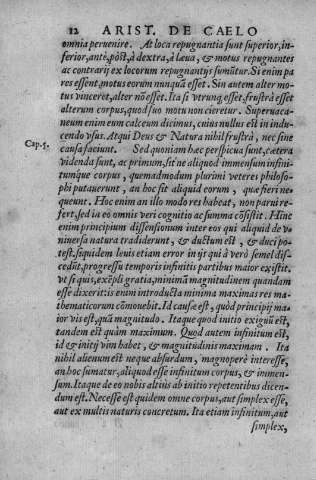 12 ARIST. DE CAELO
omnia peruenire. At loca repugnantia sunt superior, in-
ferior, antè, pòst, à dextra, à læua, & motus repugnantes
ac contrarij ex locorum repugnantijs sumũtur. Si enim pa
res essent, motus eorum nunquã esset. Sin autem alter mo-
tus vinceret, alter nõ esset. Ita si vtrunq; esset, frustrà esset
alterum corpus, quod suo motu non cieretur. Superuaca-
neum enim eum calceum dicimus, cuius nullus est in indu-
cendo vsus. Atqui Deus & Natura nihil frustrà, nec sine
causa faciunt. Sed quoniam hæc perspicua sunt, cætera
Cap.5.
videnda sunt, ac primum, sit ne aliquod immensum infini-
tumque corpus, quemadmodum plurimi veteres philoso-
phi putauerunt, an hoc sit aliquid eorum, quæ fieri ne-
queunt. Hoc enim an illo modo res habeat, non parui re-
fert, sed in eo omnis veri cognitio ac summa cõsistit. Hinc
enim principium dissensionum inter eos qui aliquid de v-
niuersa natura tradiderunt, & ductum est, & duci po-
test. siquidem leuis etiam error in ijs qui à verò semel disc-
cedũt, progressu temporis infinitis partibus maior existit.
vt si quis, exẽpli gratia, minimã magnitudinem quandam
esse dixerit: is enim introducta minima maximas res ma-
thematicorum cõmouebit. Id causæ est, quòd principij ma-
ior vis est, quã magnitudo. Itaque quod initio exiguũ est,
tandem est quàm maximum. Quod autem infinitum est,
id & initij vim habet, & magnitudinis maximam. Ita
nihil alienum est neque absurdum, magnoperè interesse,
an hoc sumatur, aliquod esse infinitum corpus, & immen-
sum. Itaque de eo nobis altiùs ab initio repetentibus dicen-
dum est. Necesse est quidem omne corpus, aut simplex esse,
aut ex multis naturis concretum. Ita etiam infinitum, aut
simplex,